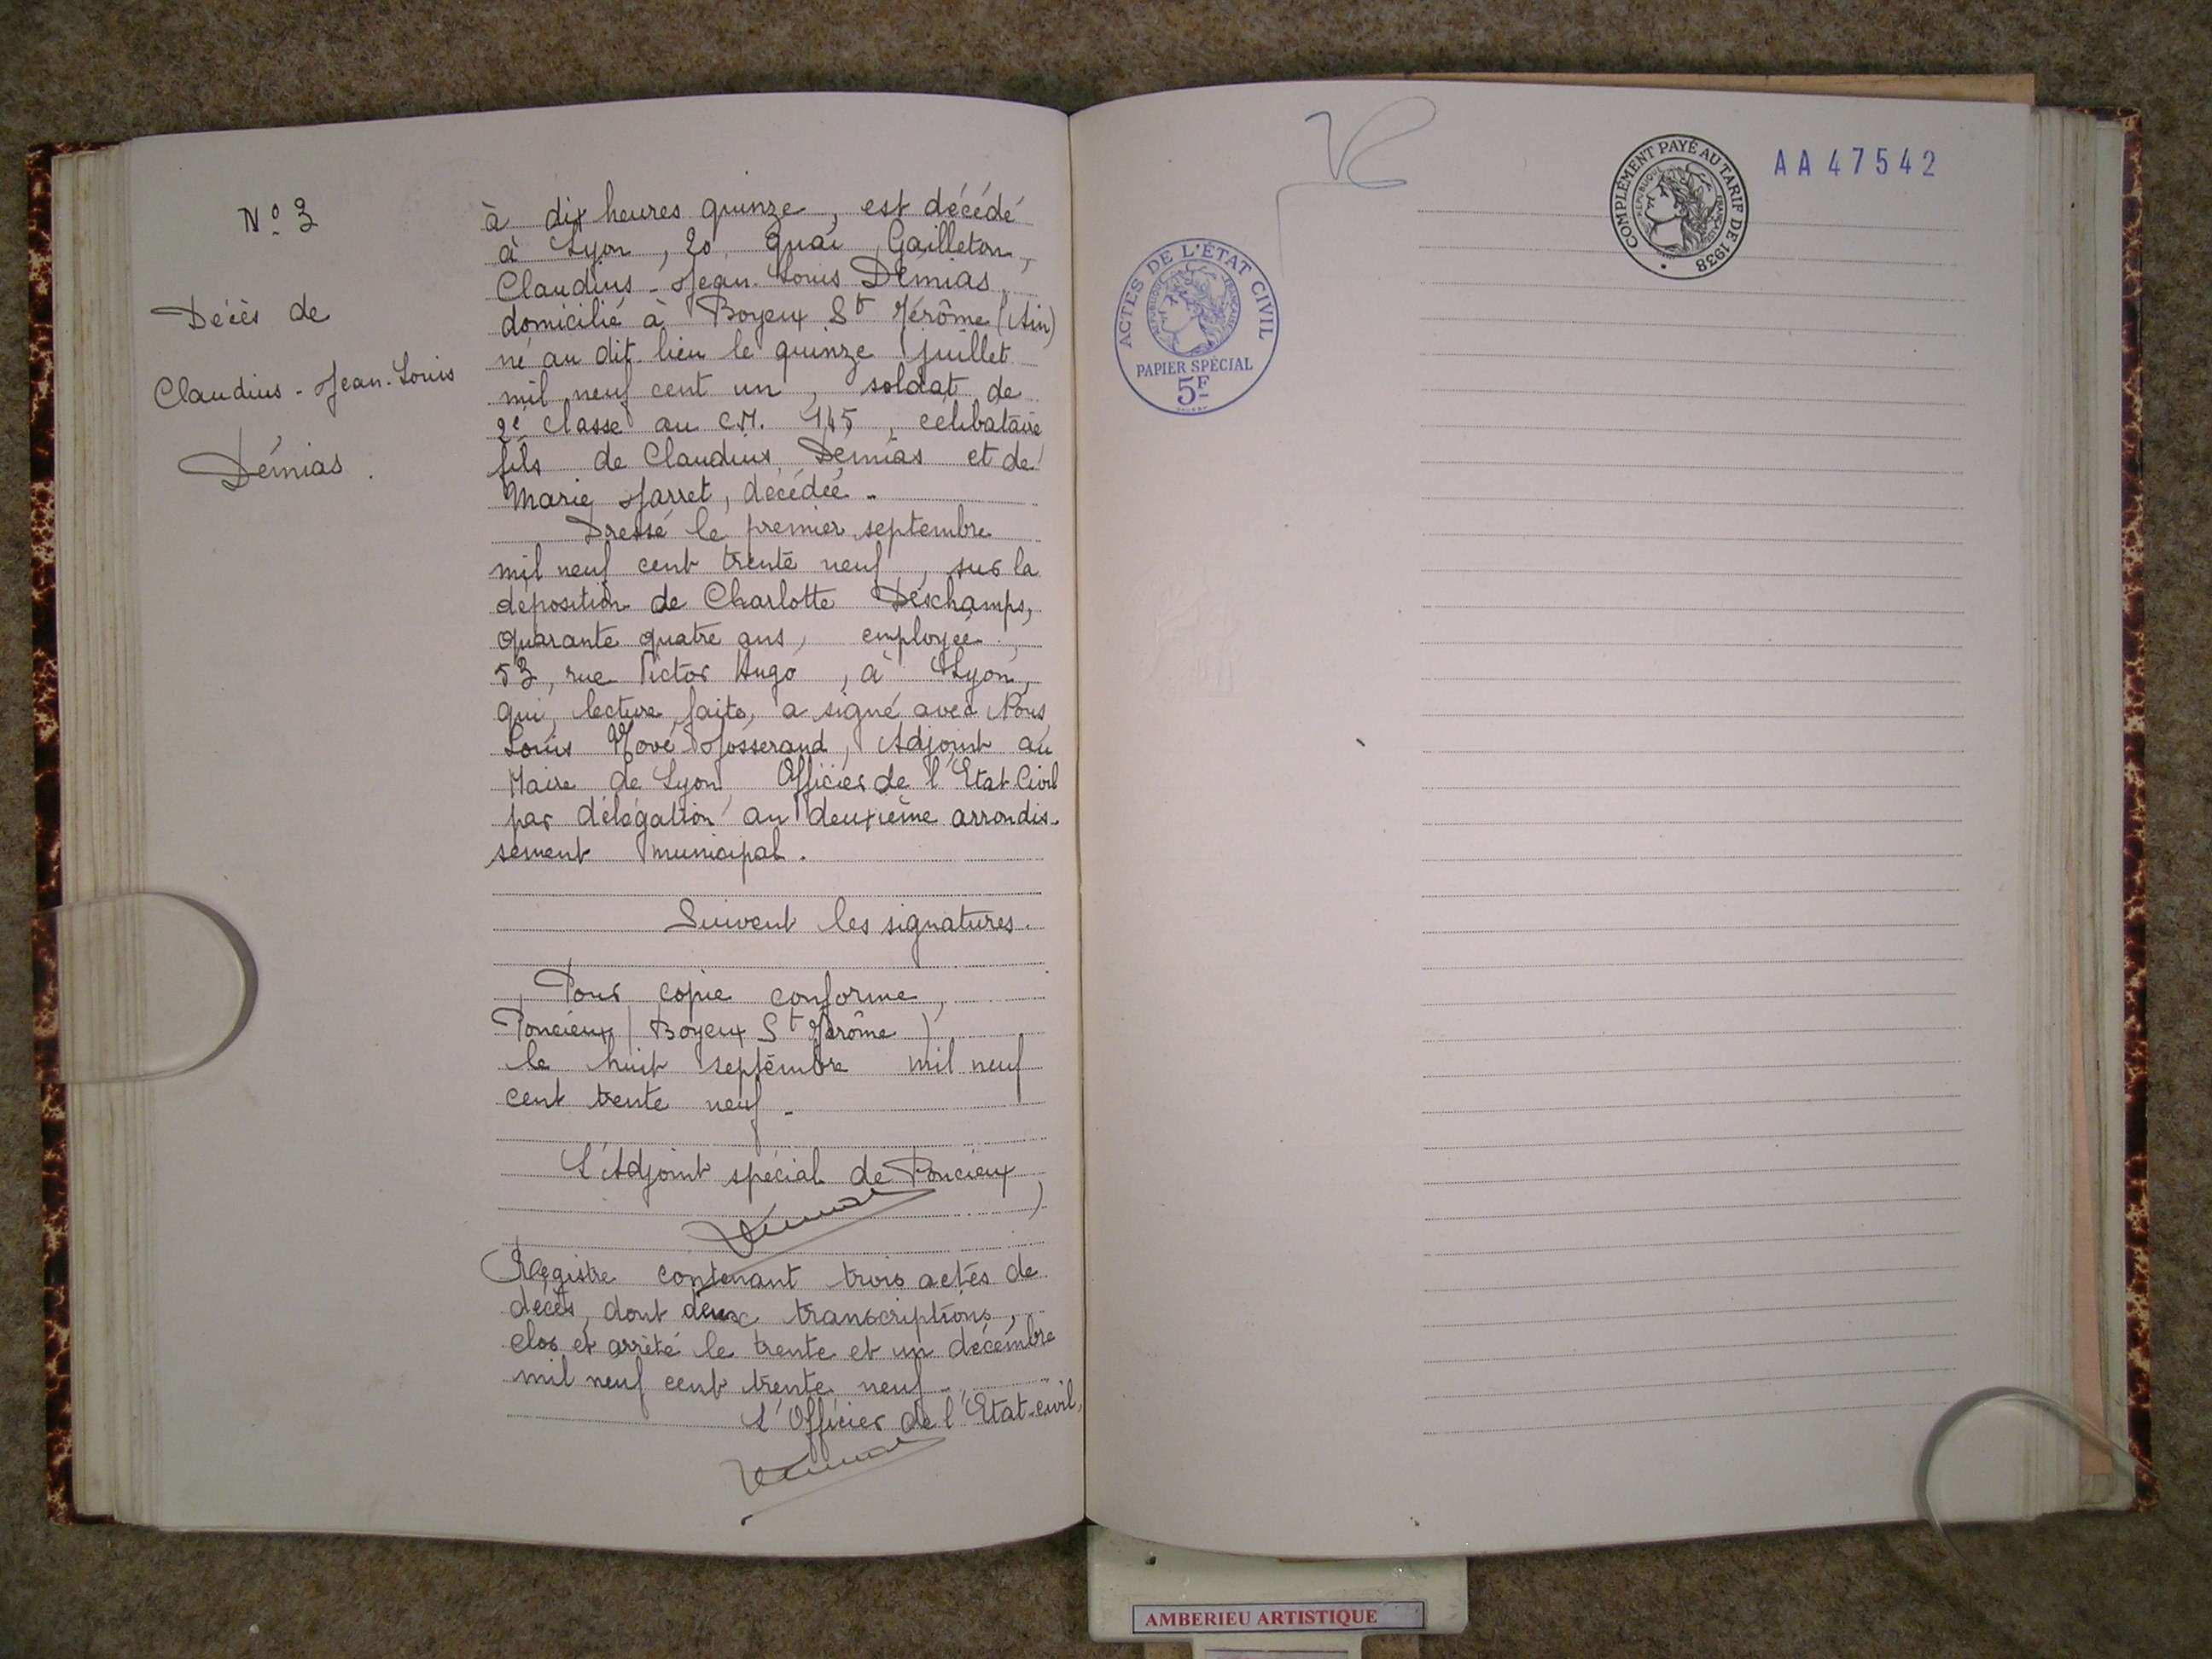 N° 3
Décès de
Claudius-Jean-Louis
Démias.
à dix heures quinze, est décédé
à Lyon, 20 quai Gailleton,
Claudius-Jean-Louis Démias
domicilié à Boyeux St Jérôme (Ain)
né au dit lieu le quinze juillet
mil neuf cent un, soldat de
2e classe au C.M. 145, célibataire
fils de Claudius Démias et de
Marie Jarret, décédée.
Dressé le premier septembre
mil neuf cent trente neuf, sur la
déposition de Charlotte Deschamps,
quarante quatre ans, employée,
53, rue Victor Hugo, à Lyon,
qui, lecture faite, a signé avec Nous
Louis Nové-Josserand, Adjoint au
Maire de Lyon, Officier de l'Etat Civil
par délégation au deuxième arrondis-
sement municipal.
Suivent les signatures.
Pour copie conforme,
Poncieux (Boyeux St Jérôme)
le huit septembre mil neuf
cent trente neuf.
L'Adjoint spécial de Poncieux,
Démias
Registre contenant trois actes de
décès, dont deux transcriptions,
clos et arrêté le trente et un décembre
mil neuf cent trente neuf.
L'Officier de l'Etat-civil,
Démias
COMPLÉMENT PAYÉ AU TARIF DE 1938
RÉPUBLIQUE FRANÇAISE
AA 47542
ACTES DE L'ÉTAT CIVIL
RÉPUBLIQUE FRANÇAISE
PAPIER SPÉCIAL
5F
AMBERIEU ARTISTIQUE